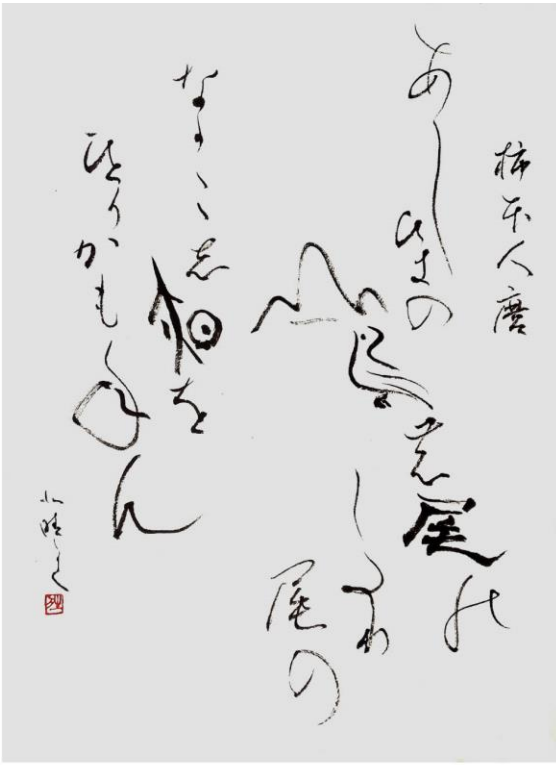 柿本人麿
あしひきの
山鳥の尾の
しだり尾の
なか〳〵志夜を
ひとりかもねん